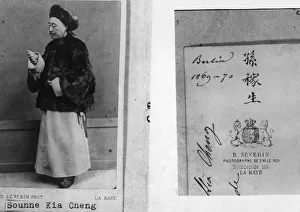 R. SEVERIN PHOT. LA HAYE
Sounne Kia Cheng
Berlin
1869-70
孫稼生
Kia Cheng
R. SEVERIN
PHOTOGRAPHE DE S.M. LE ROI
LA HAYE